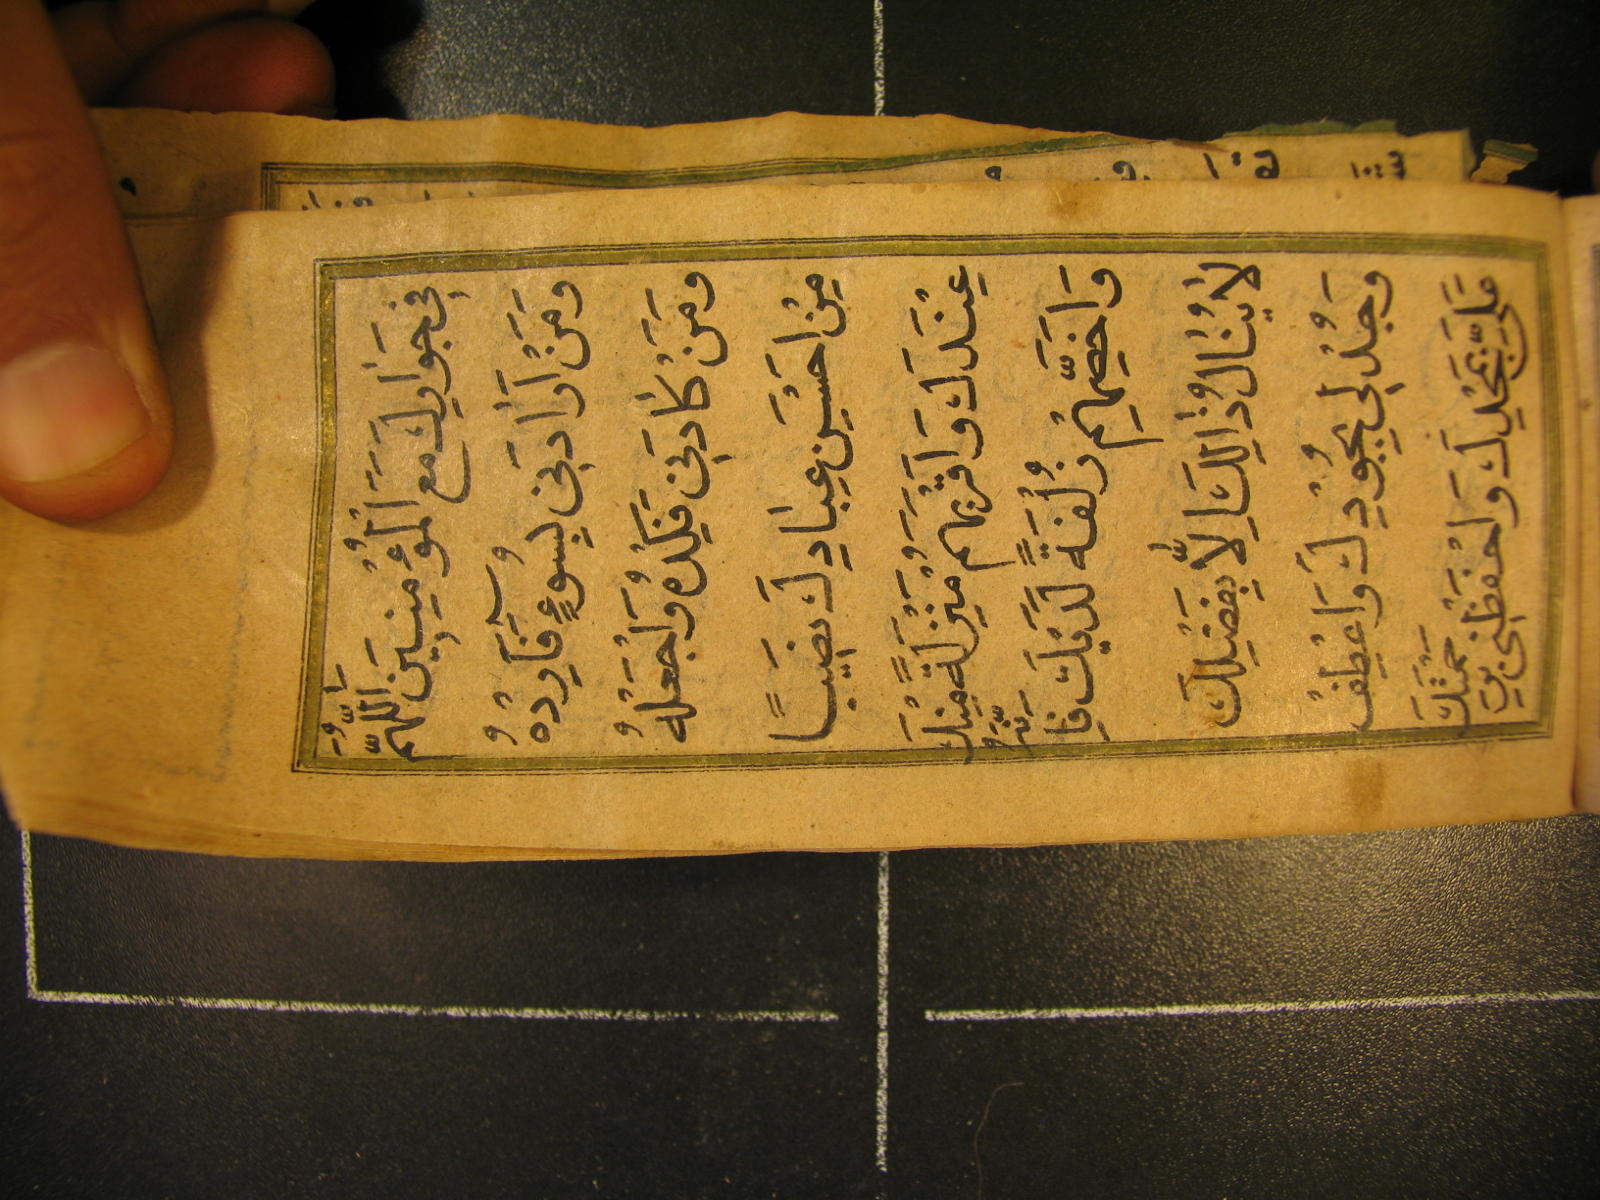 فِي جَوَارِكَ مَعَ الْمُؤْمِنِينَ اَللّٰهُمَّ
وَمَنْ اَرَادَنِي بِسُوءٍ فَاَرِدْهُ
وَمَنْ كَادَنِي فَكِدْهُ وَاجْعَلْهُ
مِنْ اَحْسَنِ عِبَادِكَ نَصِيبًا
عِنْدَكَ وَاَقْرَبِهِمْ مَنْزِلَةً مِنْكَ
وَاَخَصِّهِمْ زُلْفَةً لَدَيْكَ فَاِنَّهُ
لَايُنَالُ ذٰلِكَ اِلَّا بِفَضْلِكَ
وَجُدْ لِي بِجُودِكَ وَاعْطِفْ
عَلَيَّ بِمَجْدِكَ وَاحْفَظْنِي بِرَحْمَتِكَ